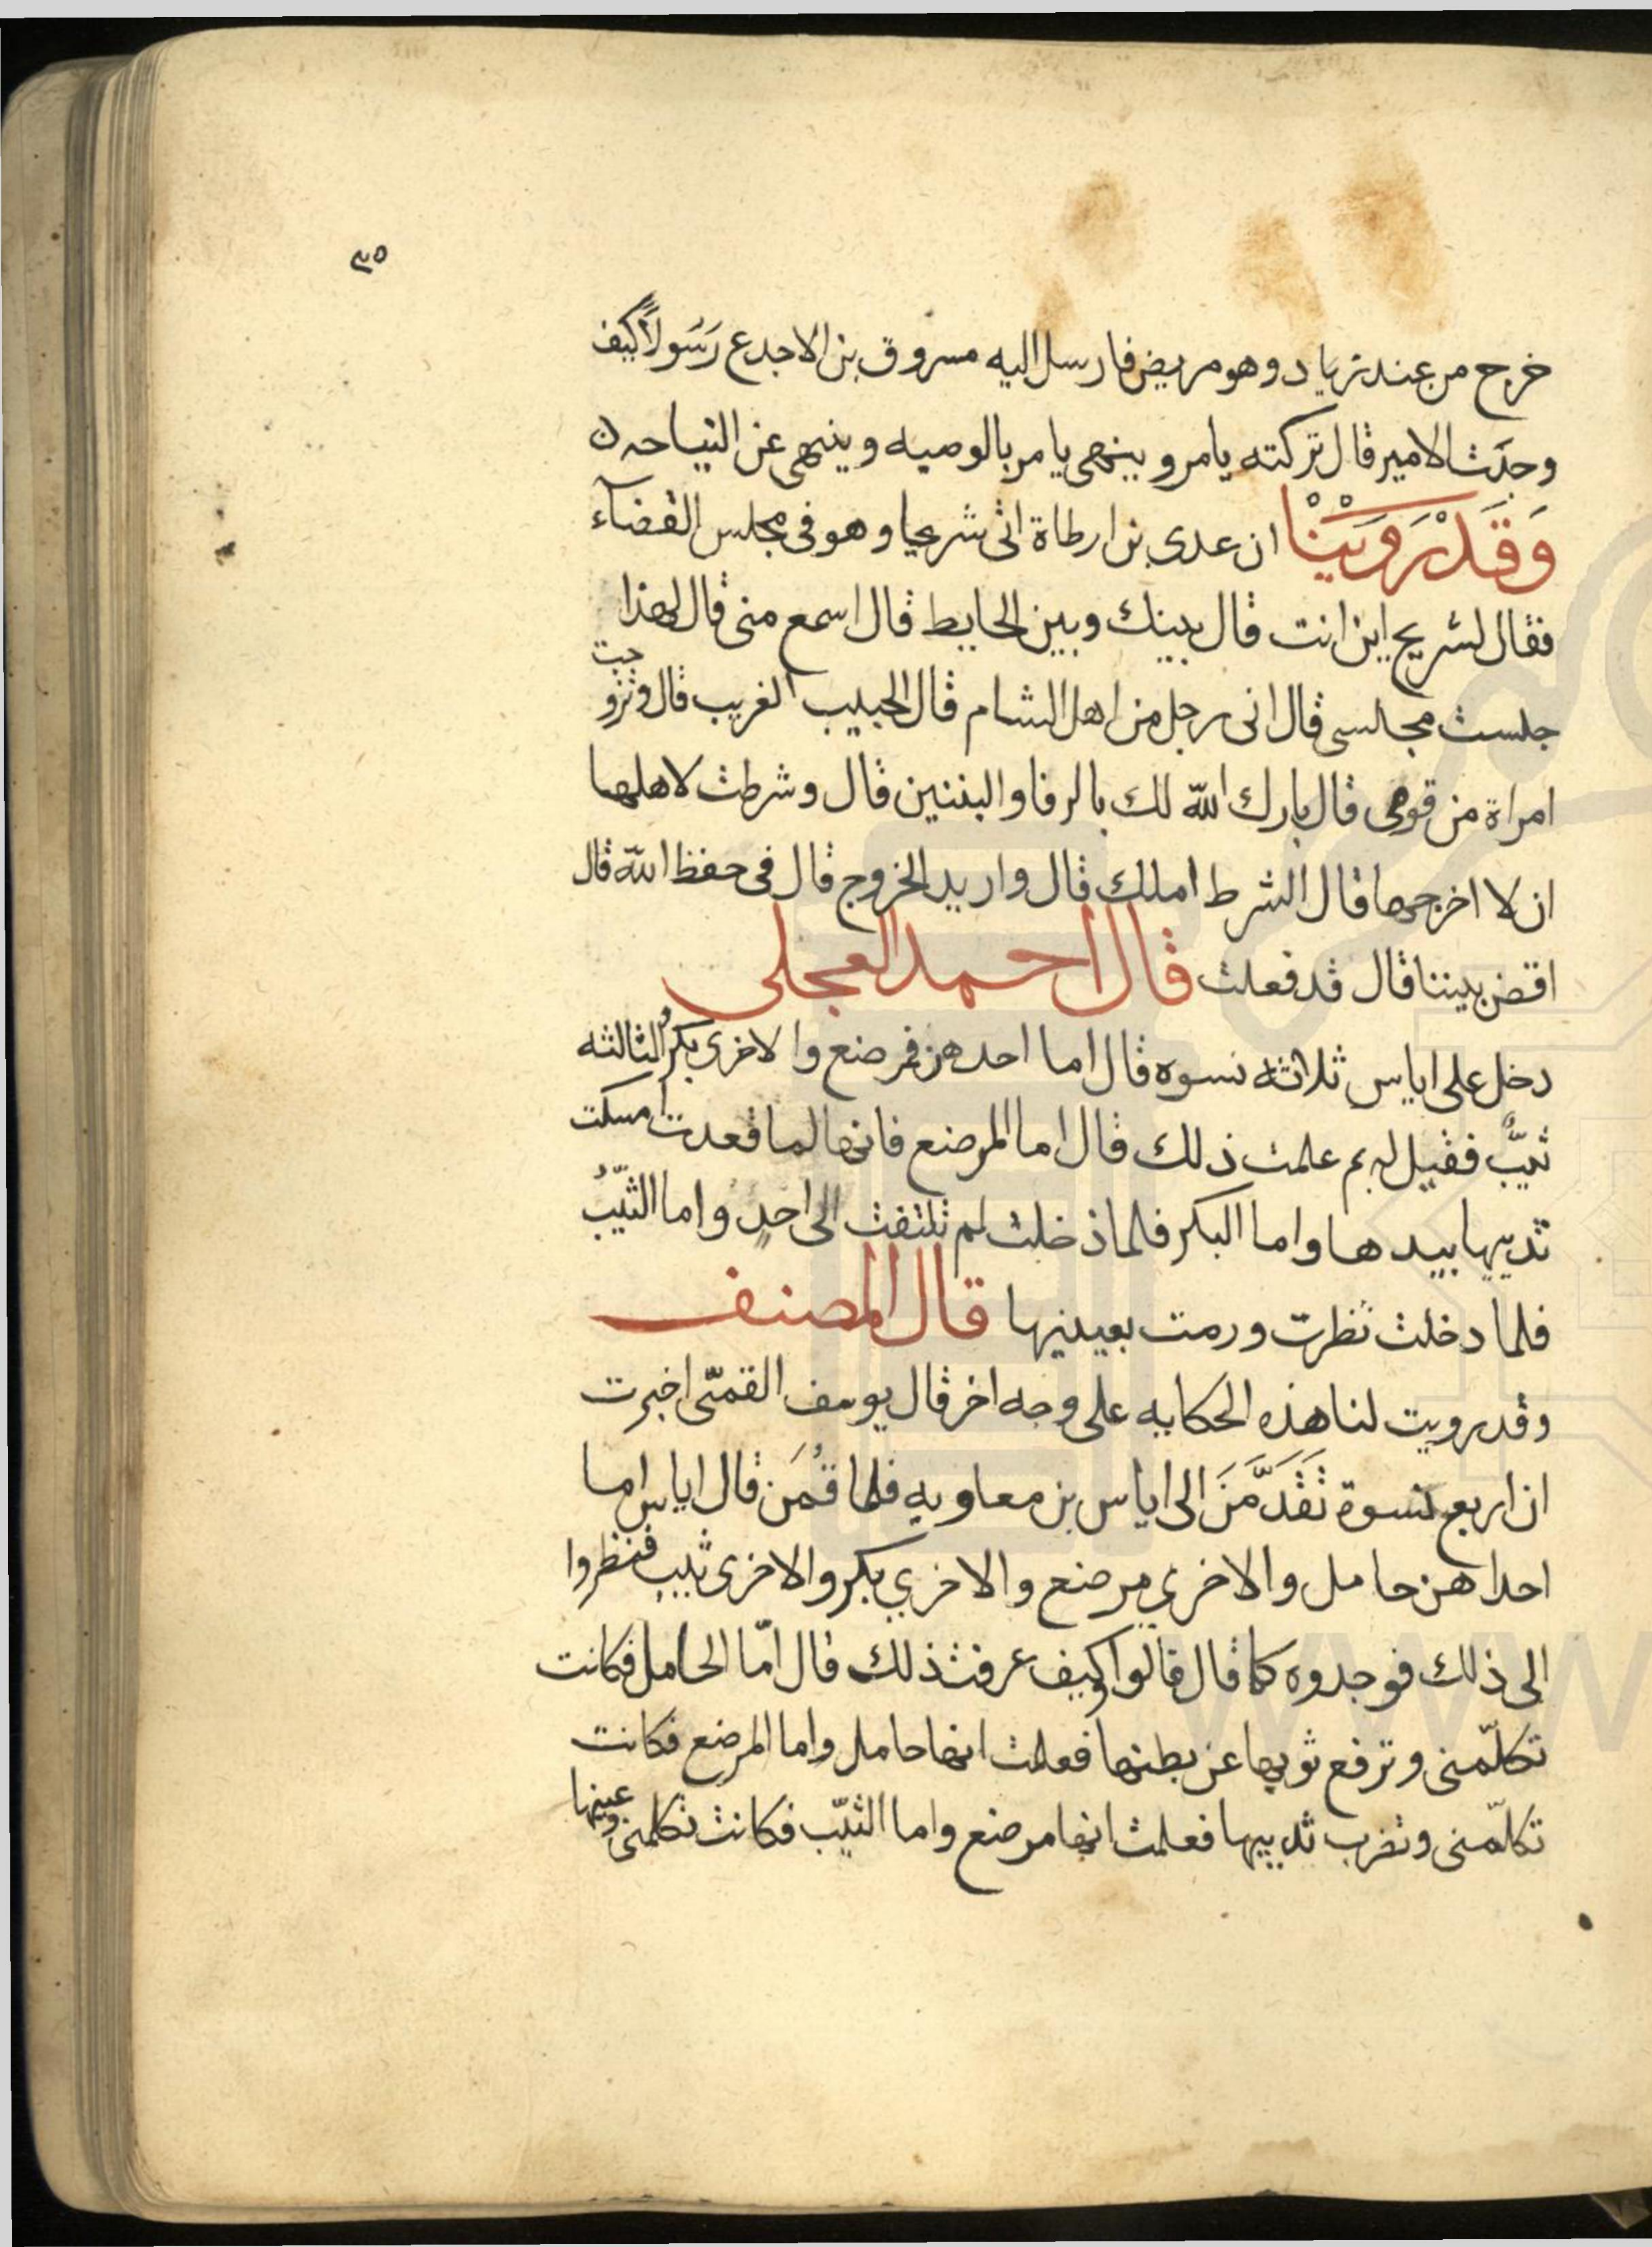 ٣٥
خرج من عند زياد وهو مريض فارسل اليه مسروق بن الاجدع رَسَولاً كيف
وجدَت الامير قال تركته يامر و ينهى يامر بالوصيه و ينهى عن النياحه ن
وَقَدْ رَوَيْنْا ان عدى بن ارطاة اتى شريحا و هو فى مجلس القضآء
فقال لشريح اين انت قال بينك وبين الحايط قال اسمع منى قال لهذا
جلست مجالسى قال انى رجل من اهل الشام قال الحبيب الغريب قال وتزوجت
امراة من قومى قال بارك الله لك بالرفا والبنين قال وشرطت لاهلها
ان لا اخرجها قال الشرط املك قال واريد الخروج قال فى حفظ الله قال
اقض بيننا قال قد فعلت قال احمد العجلى
دخل على اياس ثلاثه نسوه قال اما احدهن فمرضع وا لاخرى بكر والثالثه
ثيبٌ فقيل له بم علمت ذلك قال اما المرضع فانها لما قعدت امسكت
ثدييها بيدها واما البكر فلما دخلت لم تلتفت الى احدٍ واما الثيّبُ
فلما دخلت نظرت ورمت بعينيها قال المصنف
وقد رويت لنا هذه الحكايه على وجه اخر قال يوسف القمّى اخبرت
ان اربع نسوة تَقَدَّمَنَ الى اياس بن معاويه فلما قُمَن قال اياس اما
احداهن حامل والاخرى مرضع والاخري بكر والاخرى ثيب فنظروا
الى ذلك فوجدوه كما قال قالوا وكيف عرفت ذلك قال امّا الحامل فكانت
تكلّمنى وترفع ثوبها عن بطنها فعلمت انها حامل واما المرضع فكانت
تكلّمنى وتضرب ثدييها فعلمت انها مرضع واما الثيّب فكانت تكلمنى وعينها